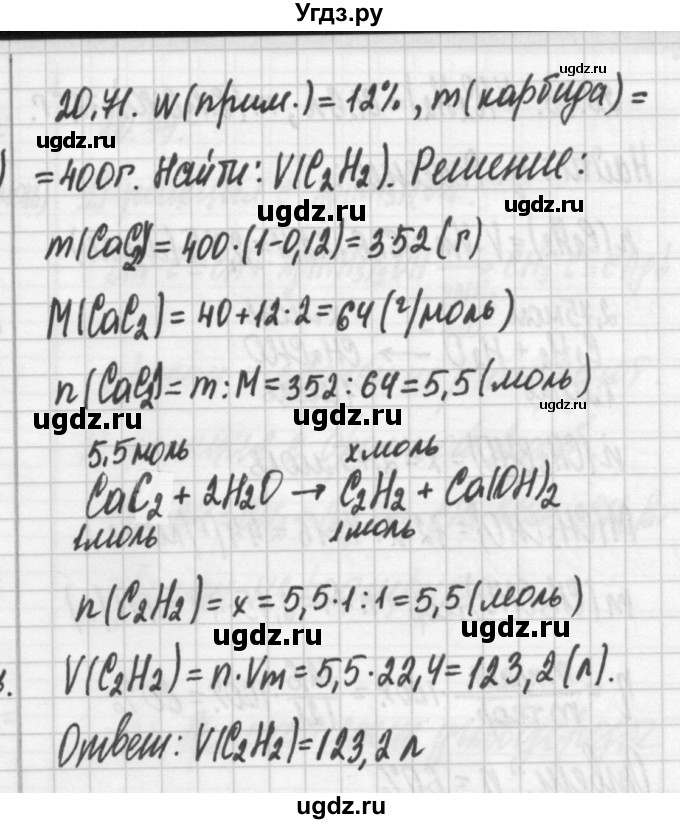 Угдз.ру
ugdz.ru
20.71. W(прим.) = 12%, m(карбида) =
ugdz.ru
= 400г. Найти: V(C₂H₂). Решение:
ugdz.ru ugdz.ru
m(CaC₂) = 400·(1-0,12) = 352(г)
M(CaC₂) = 40+12·2 = 64(г/моль)
n(CaC₂) = m:M = 352:64 = 5,5(моль)
ugdz.ru ugdz.ru ugdz.ru
5,5моль xмоль
CaC₂ + 2H₂O → C₂H₂ + Ca(OH)₂
1моль 1моль
n(C₂H₂) = x = 5,5·1:1 = 5,5(моль)
ugdz.ru ugdz.ru
V(C₂H₂) = n·Vm = 5,5·22,4 = 123,2(л).
Ответ: V(C₂H₂) = 123,2 л
ugdz.ru